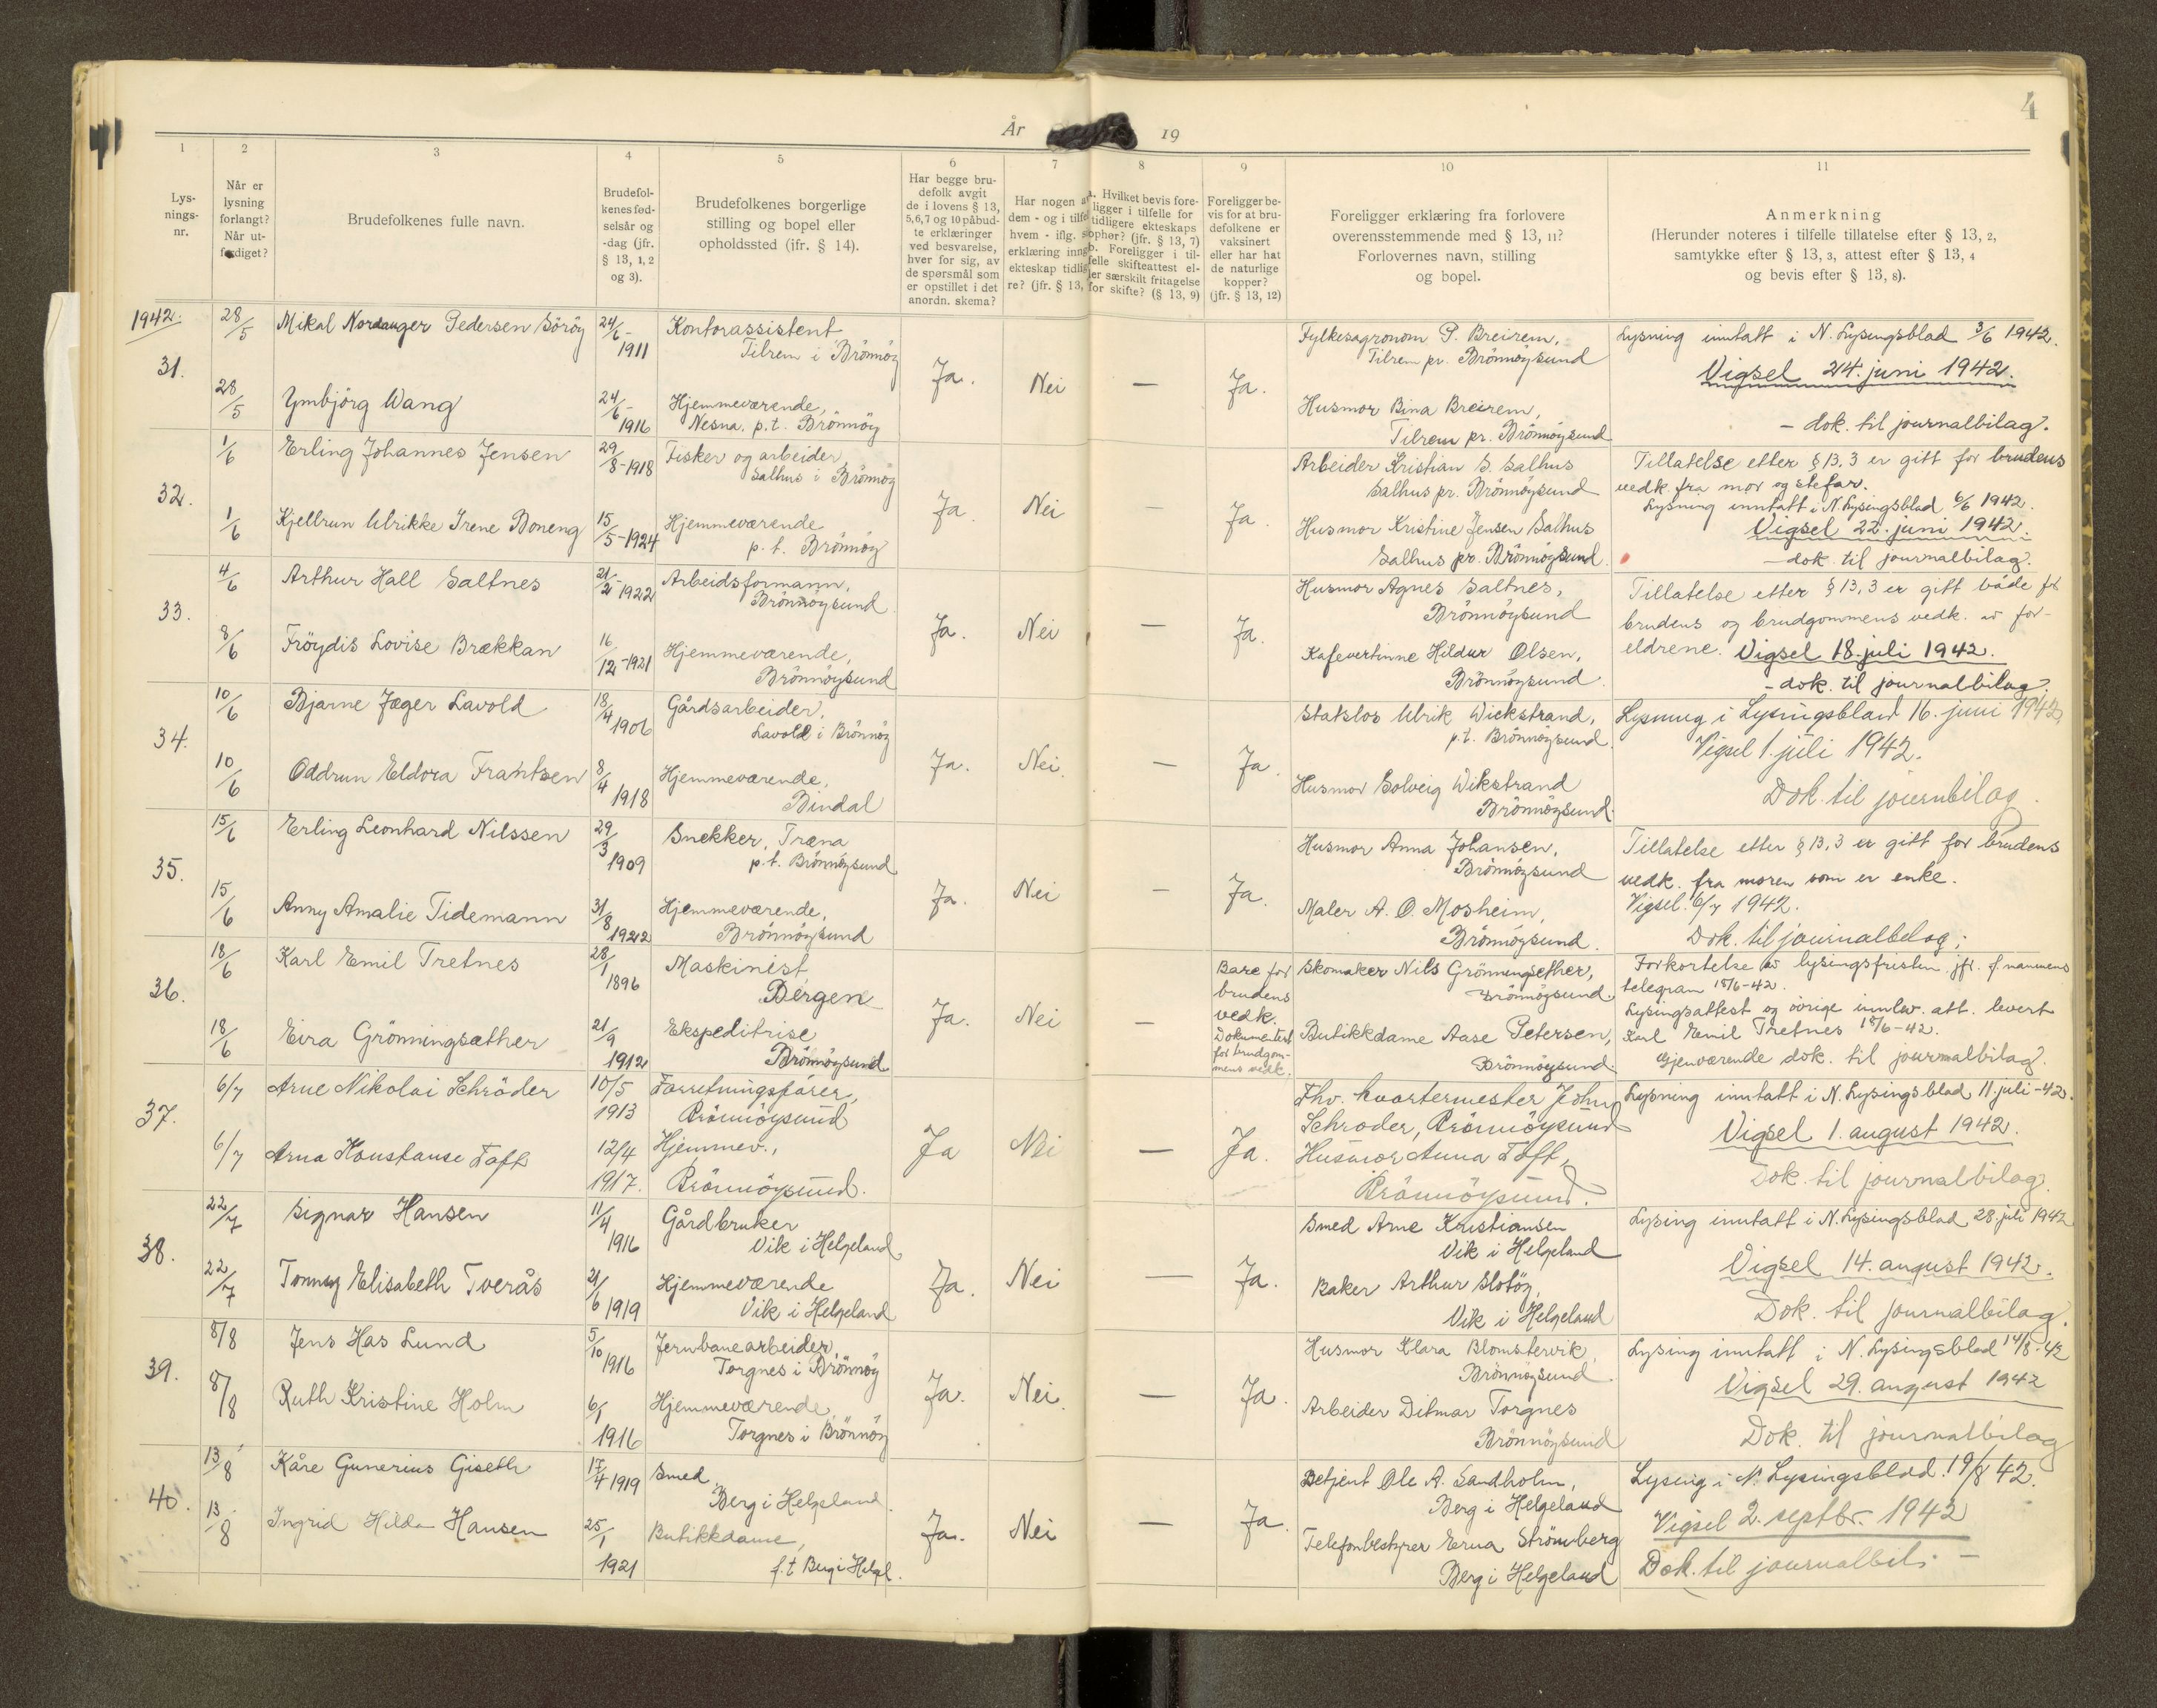 4
År 19
1 2 3 4 5 6 7 8 9 10 11
Lys-
nings-
nr.
Når er
lysning
forlangt?
Når ut-
ferdiget?
Brudefolkenes fulle navn.
Brudefol-
kenes fød-
selsår og
-dag (jfr.
§ 13, 1, 2
og 3).
Brudefolkenes borgerlige
stilling og bopel eller
opholdssted (ifr. § 14).
Har begge bru-
defolk avgit
de i lovens § 13,
5, 6, 7 og 10 påbud-
te erklæringer
ved besvarelse,
hver for sig, av
de spørsmål som
er opstillet i det
anordn. skema?
Har nogen a
dem - og i tilfe
hvem - iflg. s
erklæring inng
ekteskap tidlig
re? (jfr. § 13,
a. Hvilket bevis fore-
ligger i tilfelle for
tidligere ekteskaps
ophør? (jfr. § 13, 7)
b. Foreligger i til-
felle skifteattest el-
ler særskilt fritagelse
for skifte? (§ 13, 9)
Foreligger be-
vis for at bru-
defolkene er
vaksinert
eller har hat
de naturlige
kopper?
(jfr. § 13, 12)
Foreligger erklæring fra forlovere
overensstemmende med § 13, 11?
Forlovernes navn, stilling
og bopel.
Anmerkning
(Herunder noteres i tilfelle tillatelse efter § 13, 2,
samtykke efter § 13, 3, attest efter § 13, 4
og bevis efter § 13, 8).
1942.
31.
28/5 Mikal Nordanger Pedersen Söröy 24/6-1911 Kontorassistent
Tilrem i Brönnöy
28/5 Ymbjörg Wang 24/6-1916 Hjemmeværende,
Nesna, p.t. Brönnöy
Ja. Nei — Ja.
Fylkesagronom P. Breirem,
Tilrem pr. Brönnöysund
Husmor Bina Breirem,
Tilrem pr. Brönnöysund
Lysning inntatt i N. Lysingsblad 3/6 1942.
Vigsel 24. juni 1942.
- dok. til journalbilag.
32.
1/6 Erling Johannes Jensen 29/8-1918 Fisker og arbeider
Salhus i Brönnöy
1/6 Kjellrun Ulrikke Irene Boneng 15/5-1924 Hjemmeværende
p.t. Brönnöy
Ja Nei — Ja.
Arbeider Kristian S. Salhus
Salhus pr. Brönnöysund
Husmor Kristine Jensen Salhus
Salhus pr. Brönnöysund.
Tillatelse etter § 13,3 er gitt for brudens
vedk. fra mor og stefar.
Lysning inntatt i N. Lysingsblad 6/6 1942.
Vigsel 22. juni 1942.
- dok. til journalbilag.
33.
4/6 Arthur Hall Saltnes 21/2-1922 Arbeidsformann,
Brönnöysund
8/6 Fröydis Lovise Brækkan 16/12-1921 Hjemmeværende,
Brönnöysund
Ja. Nei — Ja.
Husmor Agnes Saltnes,
Brönnöysund
Kafevertinne Hildur Olsen,
Brönnöysund.
Tillatelse etter § 13,3 er gitt både for
brudens og brudgommens vedk. av for-
eldrene. Vigsel 18. juli 1942.
- dok. til journalbilag.
34.
10/6 Bjarne Jæger Lavold 18/4 1906 Gårdsarbeider,
Lavold i Brönnöy
10/6 Oddrun Eldora Frantsen 8/4 1918 Hjemmeværende,
Bindal
Ja. Nei. — Ja.
Statslos Ulrik Wickstrand,
p.t. Brönnöysund.
Husmor Solveig Wikstrand
Brönnöysund.
Lysning i Lysingsblad 16. juni 1942
Vigsel 1. juli 1942.
Dok. til journbilag.
35.
15/6 Erling Leonhard Nilssen 29/3 1909 Snekker, Træna
p.t. Brönnöysund
15/6 Anny Amalie Tidemann 31/8 1922 Hjemmeværende,
Brönnöysund
Ja. Nei — Ja.
Husmor Anna Johansen,
Brönnöysund
Maler A. O. Mosheim,
Brönnöysund.
Tillatelse etter § 13,3 er gitt for brudens
vedk. fra moren som er enke.
Vigsel. 6/7 1942.
Dok. til journalbilag;
36.
18/6 Karl Emil Tretnes 28/1 1896 Maskinist
Bergen
18/6 Eira Grönningsæther 21/9 1912 Ekspeditrise
Brönnöysund
Ja. Nei —
Bare for
brudens
vedk.
Dokumentert
for brudgom-
mens vedk.
Skomaker Nils Grönningsæther,
Brönnöysund.
Butikkdame Aase Petersen,
Brönnöysund.
Forkortelse av lysingsfristen jfr. f. mannens
telegram 18/6-42.
Lysingsattest og övrige innlev. att. levert
Karl Emil Tretnes 18/6-42.
Gjenværende dok. til journalbilag.
37.
6/7 Arne Nikolai Schröder 10/5 1913 Forretningsförer,
Brönnöysund
6/7 Arna Konstanse Toft 12/4 1917. Hjemmev.,
Brönnöysund.
Ja Nei — Ja.
Fhv. kvartermester John
Schrøder, Brönnöysund
Husmor Anna Toft,
Brönnöysund.
Lysning inntatt i N. Lysingsblad 11. juli -42.
Vigsel 1. august 1942.
Dok. til journalbilag.
38.
22/7 Signar Hansen 11/4 1916 Gårdbruker
Vik i Helgeland
22/7 Tonny Elisabeth Tverås 21/6 1919 Hjemmeværende
Vik i Helgeland
Ja. Nei — Ja.
Smed Arne Kristiansen
Vik i Helgeland
Baker Arthur Slotöy,
Vik i Helgeland
Lysing inntatt i N. Lysingsblad 28. juli 1942
Vigsel 14. august 1942.
Dok. til journalbilag.
39.
8/8 Jens Has Lund 5/10 1916 Jernbanearbeider,
Torgnes i Brönnöy
8/8 Ruth Kristine Holm 6/1 1916 Hjemmeværende,
Torgnes i Brönnöy
Ja. Nei. — Ja.
Husmor Klara Blomstervik,
Brönnöysund.
Arbeider Ditmar Torgnes
Brönnöysund
Lysing inntatt i N. Lysingsblad 14/8-42
Vigsel 29. august 1942
Dok. til journalbilag
40.
13/8 Kåre Gunerius Giseth 17/4 1919 Smed,
Berg i Helgeland.
13/8 Ingrid Hilda Hansen 25/1 1921 Butikkdame,
f.t Berg i Helgl.
Ja. Nei — Ja.
Betjent Ole A. Sandholm,
Berg i Helgeland
Telefonbestyrer Erna Strömberg
Berg i Helgeland
Lysing i N. Lysingsblad. 19/8 42.
Vigsel 2. septbr. 1942
Dok. til journalbil. -